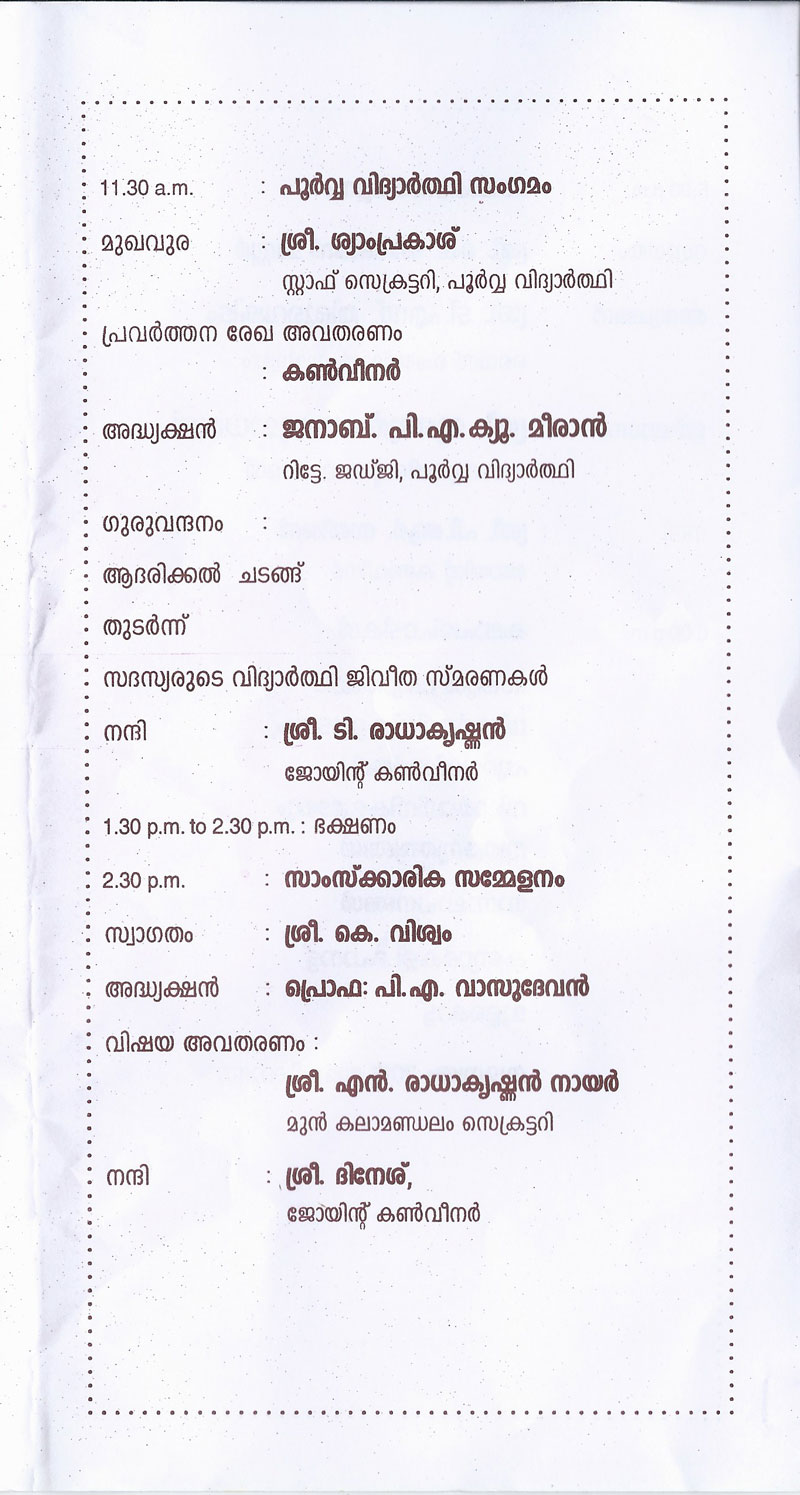 11.30 a.m. : പൂർവ്വ വിദ്യാർത്ഥി സംഗമം
മുഖവുര : ശ്രീ. ശ്യാംപ്രകാശ്
സ്റ്റാഫ് സെക്രട്ടറി, പൂർവ്വ വിദ്യാർത്ഥി
പ്രവർത്തന രേഖ അവതരണം
: കൺവീനർ
അദ്ധ്യക്ഷൻ : ജനാബ്. പി.എ.ക്യൂ. മീരാൻ
റിട്ടേ. ജഡ്ജി, പൂർവ്വ വിദ്യാർത്ഥി
ഗുരുവന്ദനം :
ആദരിക്കൽ ചടങ്ങ്
തുടർന്ന്
സദസ്യരുടെ വിദ്യാർത്ഥി ജിവീത സ്മരണകൾ
നന്ദി : ശ്രീ. ടി. രാധാകൃഷ്ണൻ
ജോയിന്റ് കൺവീനർ
1.30 p.m. to 2.30 p.m. : ഭക്ഷണം
2.30 p.m. : സാംസ്ക്കാരിക സമ്മേളനം
സ്വാഗതം : ശ്രീ. കെ. വിശ്വം
അദ്ധ്യക്ഷൻ : പ്രൊഫ: പി.എ. വാസുദേവൻ
വിഷയ അവതരണം :
ശ്രീ. എൻ. രാധാകൃഷ്ണൻ നായർ
മുൻ കലാമണ്ഡലം സെക്രട്ടറി
നന്ദി : ശ്രീ. ദിനേശ്,
ജോയിന്റ് കൺവീനർ